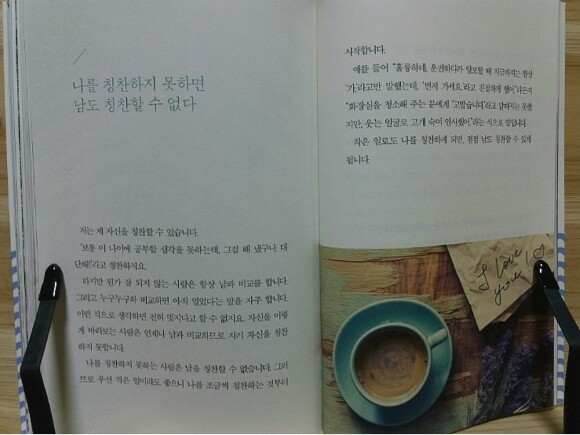 나를 칭찬하지 못하면
남도 칭찬할 수 없다
저는 제 자신을 칭찬할 수 있습니다.
'보통 이 나이에 공부할 생각을 못하는데, 그걸 해 냈구나. 대
단해!'라고 칭찬하지요.
하지만 뭔가 잘 되지 않는 사람은 항상 남과 비교를 합니다.
그리고 누구누구와 비교하면 아직 멀었다는 말을 자주 합니다.
이런 식으로 생각하면, 전혀 멋지다고 할 수 없지요. 자신을 이렇
게 바라보는 사람은 언제나 남과 비교하므로 자기 자신을 칭찬
하지 못합니다.
나를 칭찬하지 못하는 사람은 남을 칭찬할 수 없습니다. 그러
므로 우선 작은 일이라도 좋으니 나를 조금씩 칭찬하는 것부터
시작합니다.
예를 들어 "훌륭하네, 운전하다가 양보할 때 지금까지는 항상
'가'라고만 말했는데, '먼저 가세요'라고 친절하게 했어"라든지
"화장실을 청소해 주는 분에게 '고맙습니다'라고 말하지는 못했
지만, 웃는 얼굴로 고개 숙여 인사했어"라는 식으로 말입니다.
작은 일로도 나를 칭찬하게 되면, 점점 남도 칭찬할 수 있게
됩니다.
I love
you!